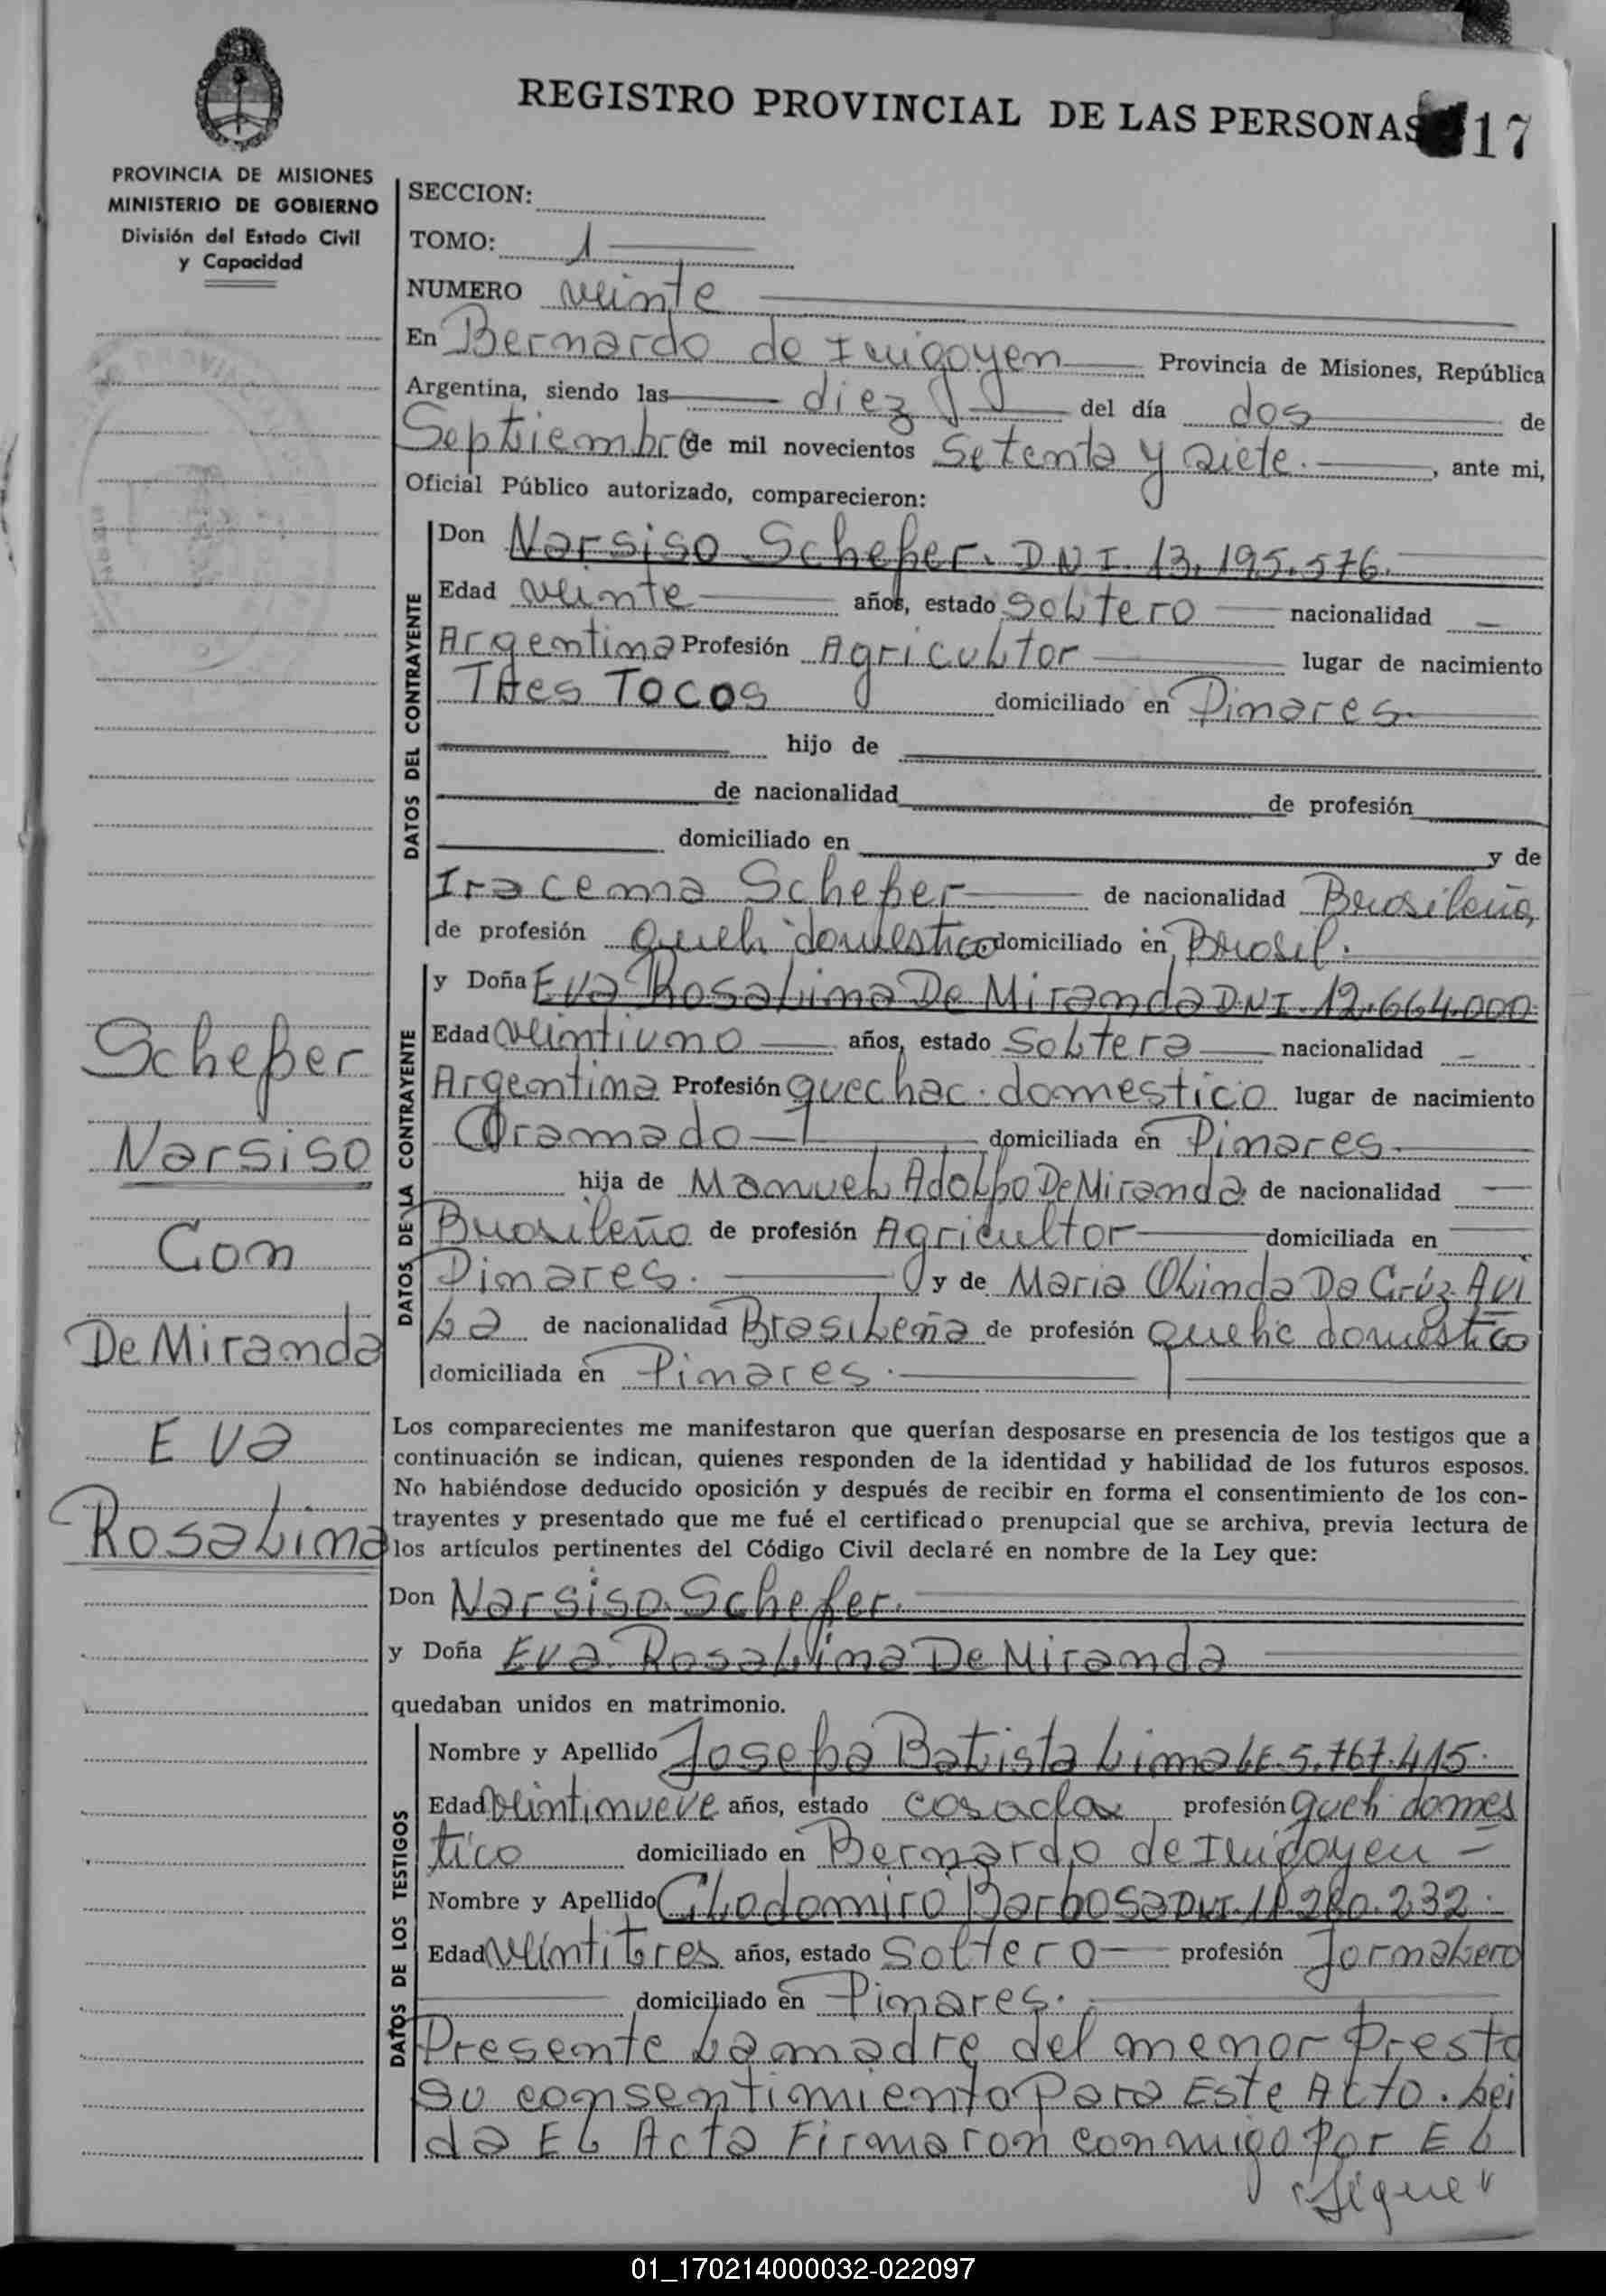 REGISTRO PROVINCIAL DE LAS PERSONAS 17
PROVINCIA DE MISIONES
MINISTERIO DE GOBIERNO
División del Estado Civil
y Capacidad
SECCION:
TOMO: 1
NUMERO veinte
En Bernardo de Irigoyen Provincia de Misiones, República
Argentina, siendo las diez del día dos de
Septiembre de mil novecientos Setenta y siete. , ante mi,
Oficial Público autorizado, comparecieron:
DATOS DEL CONTRAYENTE
Don Narsiso Schefer. DNI. 13.195.576.
Edad veinte años, estado Soltero nacionalidad
Argentina Profesión Agricultor lugar de nacimiento
Tres Tocos domiciliado en Pinares.
hijo de
de nacionalidad de profesión
domiciliado en y de
Iracema Schefer de nacionalidad Brasileña,
de profesión queh domestico domiciliado en Brasil.
DATOS DE LA CONTRAYENTE
y Doña Eva Rosalina De Miranda DNI. 12.664.000.
Edad veintiuno años, estado Soltera nacionalidad
Argentina Profesión quechac. domestico lugar de nacimiento
Gramado domiciliada en Pinares.
hija de Manuel Adolfo De Miranda de nacionalidad
Brasileño de profesión Agricultor domiciliada en
Pinares. y de Maria Olinda Da Crúz Avi
la de nacionalidad Brasileña de profesión quehc domestico
domiciliada en Pinares.
Los comparecientes me manifestaron que querían desposarse en presencia de los testigos que a
continuación se indican, quienes responden de la identidad y habilidad de los futuros esposos.
No habiéndose deducido oposición y después de recibir en forma el consentimiento de los con-
trayentes y presentado que me fué el certificado prenupcial que se archiva, previa lectura de
los artículos pertinentes del Código Civil declaré en nombre de la Ley que:
Don Narsiso Schefer.
y Doña Eva Rosalina De Miranda
quedaban unidos en matrimonio.
DATOS DE LOS TESTIGOS
Nombre y Apellido Josefa Batista Lima LE. 5.767.415.
Edad veintinueve años, estado casada profesión queh domes
tico domiciliado en Bernardo de Irigoyen
Nombre y Apellido Clodomiro Barbosa DNI. 
Edad veintitres años, estado Soltero profesión Jornalero
domiciliado en Pinares.
Presente la madre del menor Presta
su consentimiento Para Este Acto. Lei
da El Acta Firmaron conmigo Por El
"Sigue"
Schefer
Narsiso
Con
De Miranda
Eva
Rosalina
01_170214000032-022097